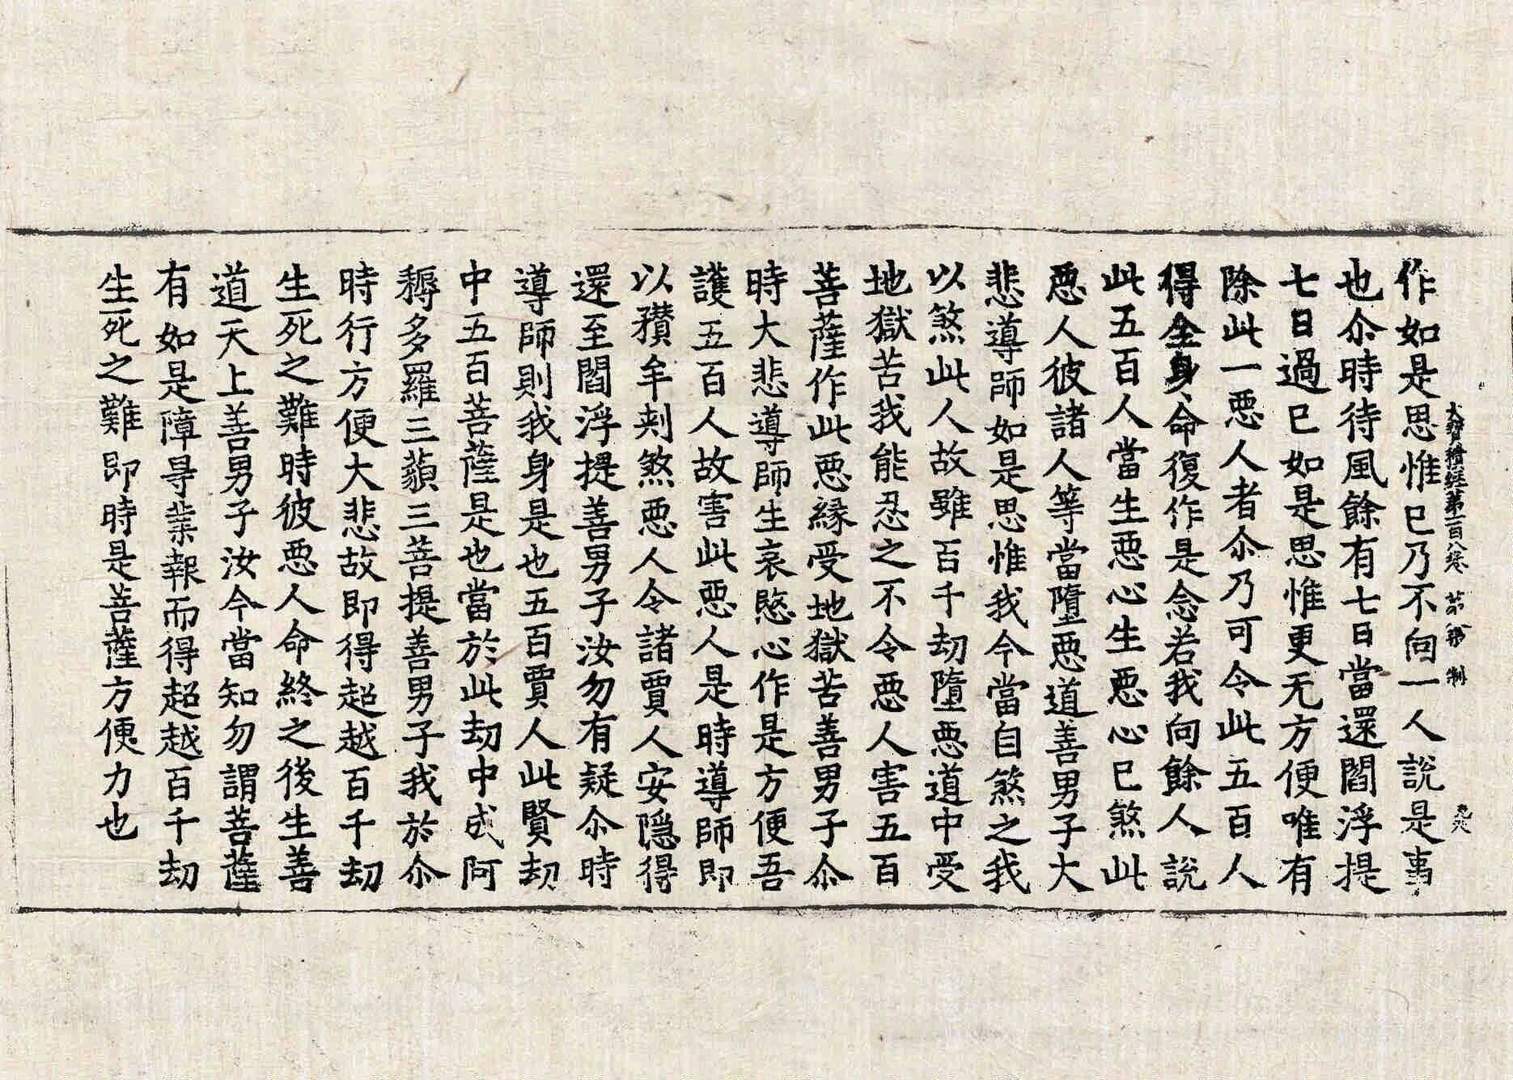 大寶積經第一百八卷 第 張 制
作如是思惟已乃不向一人說是事
也尒時待風餘有七日當還閻浮提
七日過已如是思惟更无方便唯有
除此一惡人者尒乃可令此五百人
得全身命復作是念若我向餘人說
此五百人當生惡心生惡心已煞此
惡人彼諸人等當墮惡道善男子大
悲導師如是思惟我今當自煞之我
以煞此人故雖百千劫墮惡道中受
地獄苦我能忍之不令惡人害五百
菩薩作此惡緣受地獄苦善男子尒
時大悲導師生哀愍心作是方便吾
護五百人故害此惡人是時導師即
以䂎牟刾煞惡人令諸賈人安隱得
還至閻浮提善男子汝勿有疑尒時
導師則我身是也五百賈人此賢劫
中五百菩薩是也當於此劫中成阿
耨多羅三藐三菩提善男子我於尒
時行方便大悲故即得超越百千劫
生死之難時彼惡人命終之後生善
道天上善男子汝今當知勿謂菩薩
有如是障㝵業報而得超越百千劫
生死之難即時是菩薩方便力也